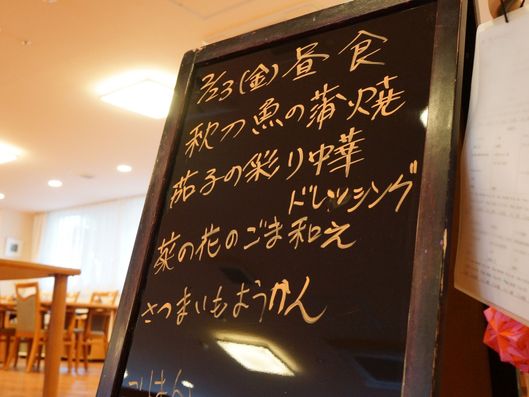 2/23(金)昼食
秋刀魚の蒲焼
茄子の彩り中華
ドレッシング
菜の花のごま和え
さつまいもようかん